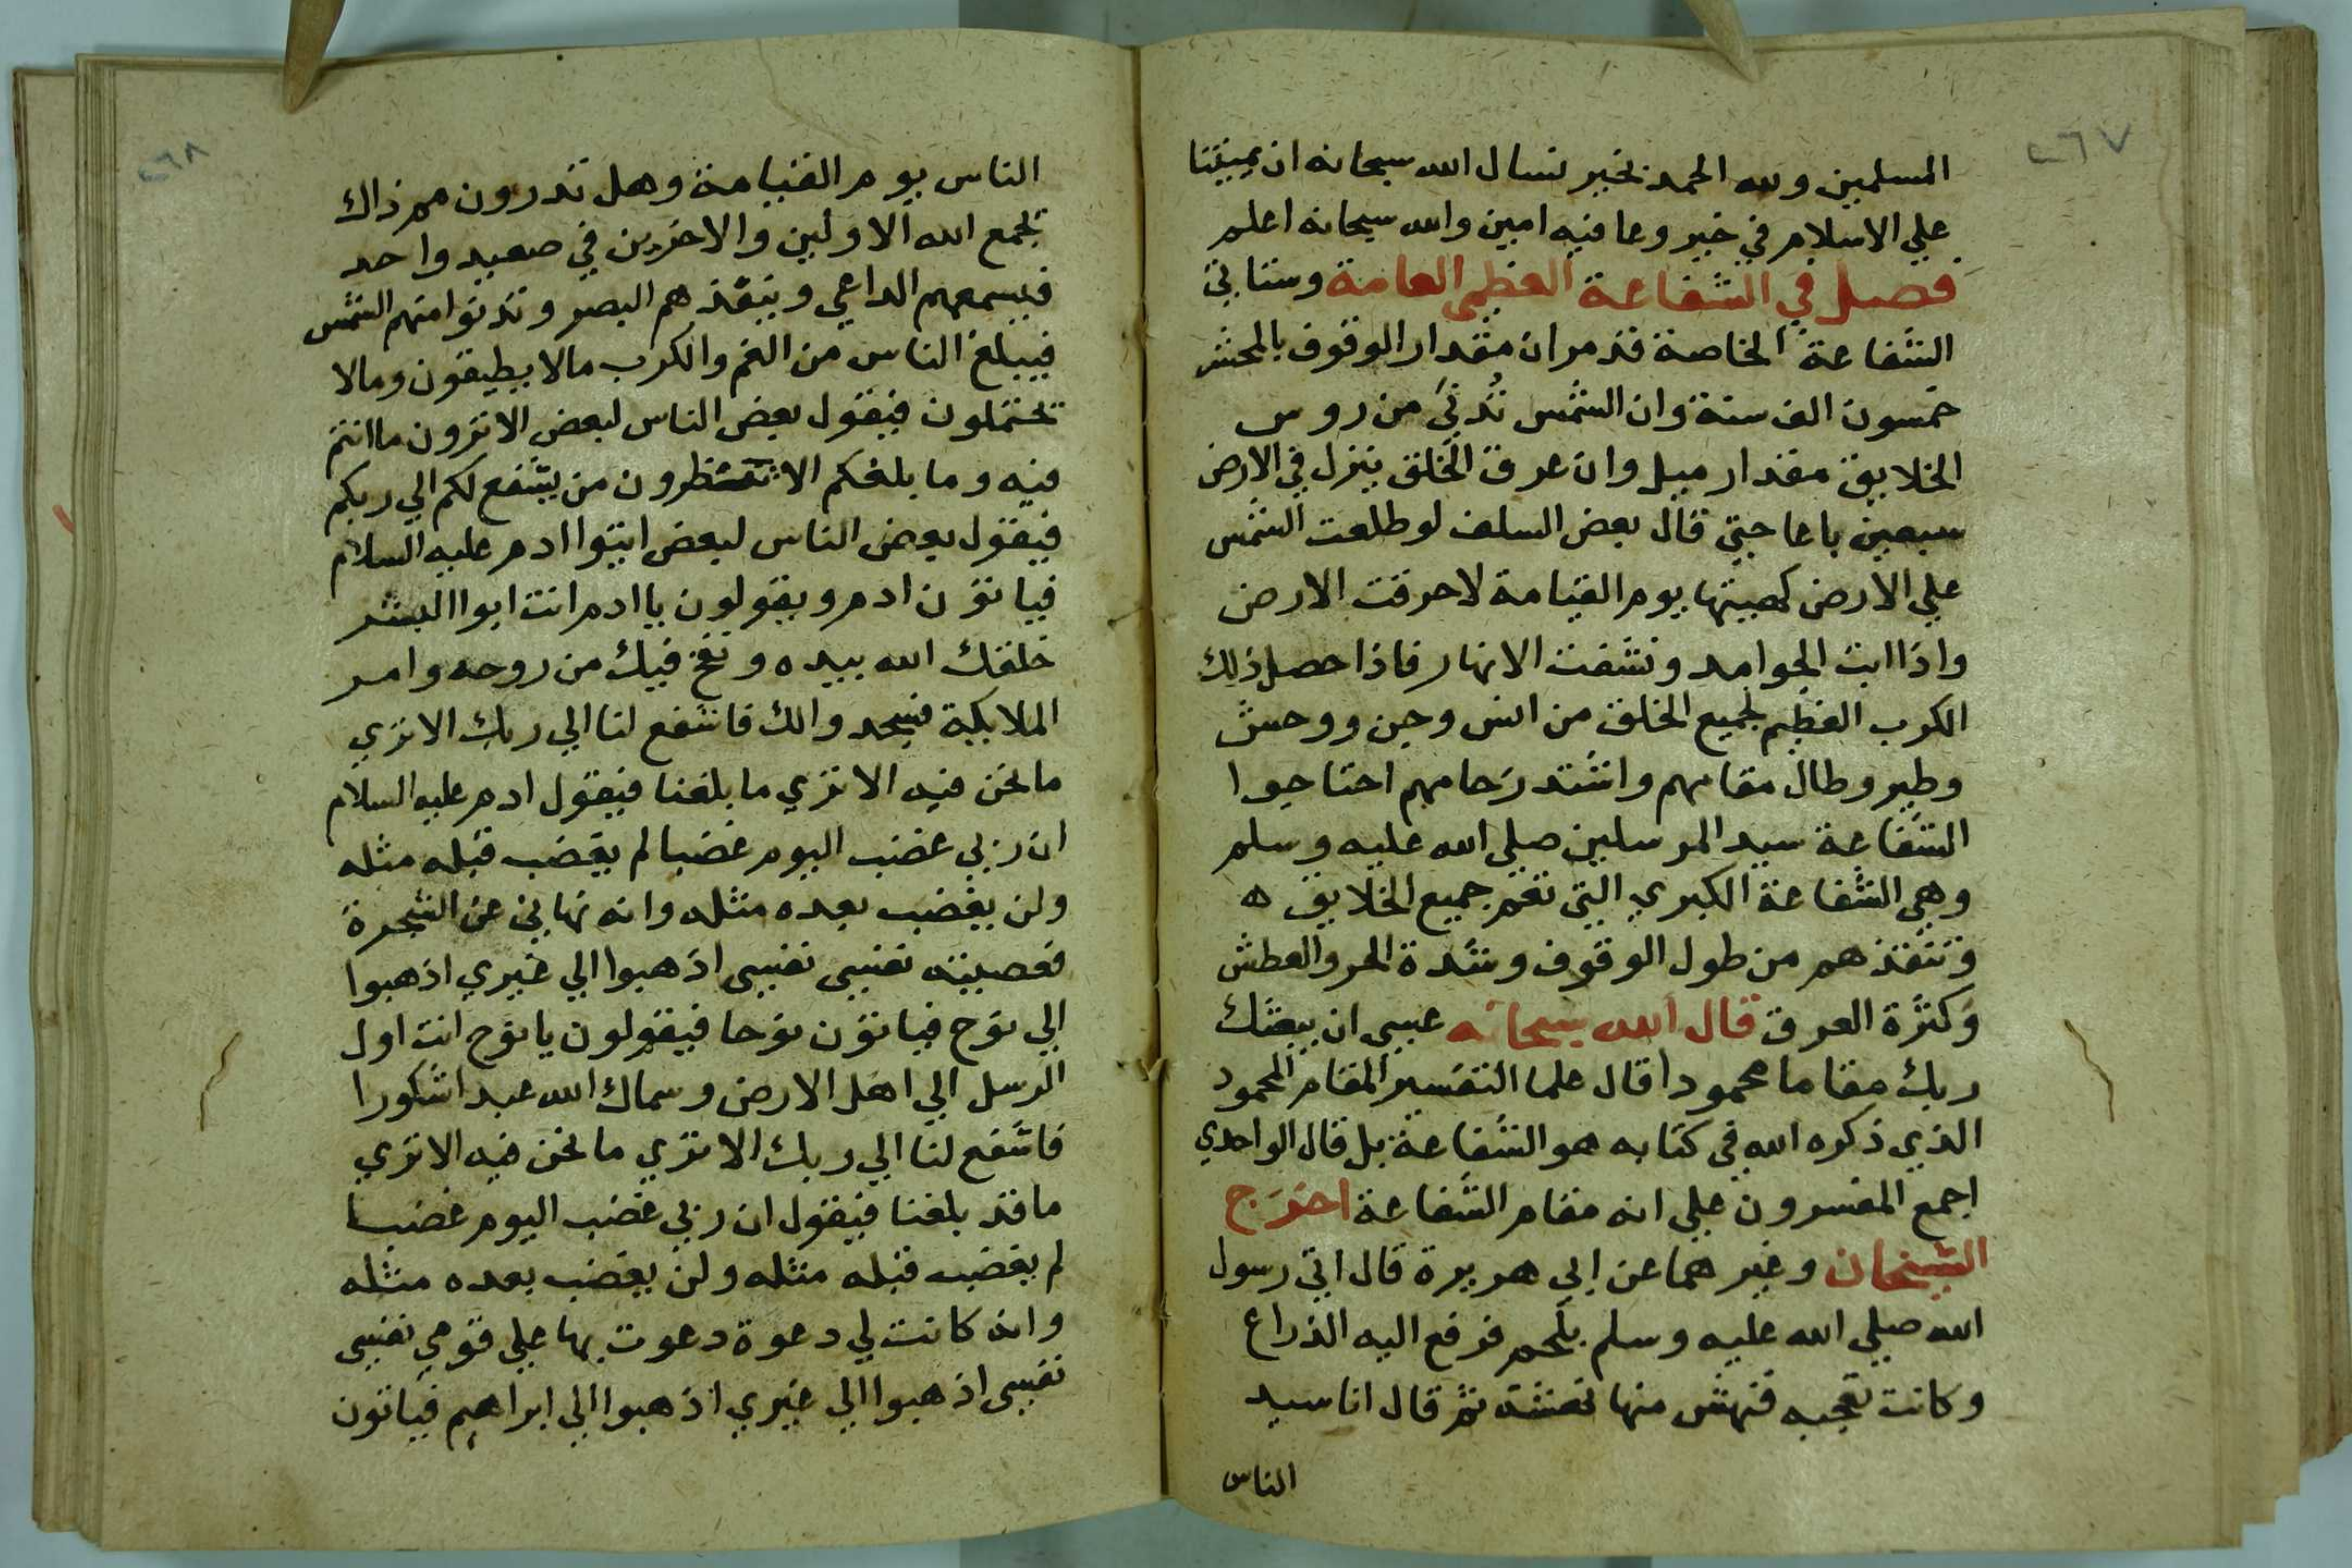 ٢٦٧
المسلمين ولله الحمد بخير نسال الله سبحانه ان يميتنا
علي الاسلام في خير وعافيه امين والله سبحانه اعلم
فصل في الشفاعة العظمى العامة وستاتي
الشفاعة الخاصة قد مر ان مقدار الوقوف بالمحشر
خمسون الف سنة وان الشمس تُدنيَ من روس
الخلايق مقدار ميل وان عرق الخلق ينزل في الارض
سبعين باعا حتي قال بعض السلف لو طلعت الشمس
علي الارض كهيتها يوم القيامة لاحرقت الارض
واذابت الجوامد ونشفت الانهار فاذا حصل ذلك
الكرب العظيم لجميع الخلق من انس وجن ووحش
وطير وطال مقامهم واشتد زحامهم احتاجوا
الشفاعة سيد المرسلين صلي الله عليه وسلم
وهي الشفاعة الكبري التي تعم جميع الخلايق ه
وتنقذهم من طول الوقوف وشدة الحر والعطش
وكثرة العرق قال الله سبحانه عسى ان يبعثك
ربك مقاما محمودا قال علما التفسير المقام المحمود
الذي ذكره الله في كتابه هو الشفاعة بل قال الواحدي
اجمع المفسرون علي انه مقام الشفاعة اخرج
الشيخان وغيرهما عن ابي هريرة قال اتي رسول
الله صلي الله عليه وسلم بلحم فرفع اليه الذراع
وكانت تعجبه فنهش منها نهشة ثم قال انا سيد
الناس
٢٦٨
الناس يوم القيامة وهل تدرون مم ذاك
يجمع الله الاولين والاخرين في صعيد واحد
فيسمعهم الداعي وينفذهم البصر وتدنوا منهم الشمس
فيبلغ الناس من الغم والكرب مالا يطيقون ومالا
يحتملون فيقول بعض الناس لبعض الا ترون ما انتم
فيه وما بلغكم الا تنظرون من يشفع لكم الي ربكم
فيقول بعض الناس لبعض ايتوا ادم عليه السلام
فياتون ادم ويقولون يا ادم انت ابوا البشر
خلقك الله بيده ونفخ فيك من روحه وامر
الملايكة فسجدوا لك فاشفع لنا الي ربك الا تري
ما نحن فيه الا تري ما بلغنا فيقول ادم عليه السلام
ان ربي غضب اليوم غضبا لم يغضب قبله مثله
ولن يغضب بعده مثله وانه نهاني عن الشجرة
فعصيته نفسي نفسي اذهبوا الي غيري اذهبوا
الي نوح فياتون نوحا فيقولون يا نوح انت اول
الرسل الي اهل الارض وسماك الله عبدا شكورا
فاشفع لنا الي ربك الا تري ما نحن فيه الا تري
ما قد بلغنا فيقول ان ربي غضب اليوم غضبا
لم يغضب قبله مثله ولن يغضب بعده مثله
وانه كانت لي دعوة دعوت بها علي قومي نفسي
نفسي اذهبوا الي غيري اذهبوا الي ابراهيم فياتون